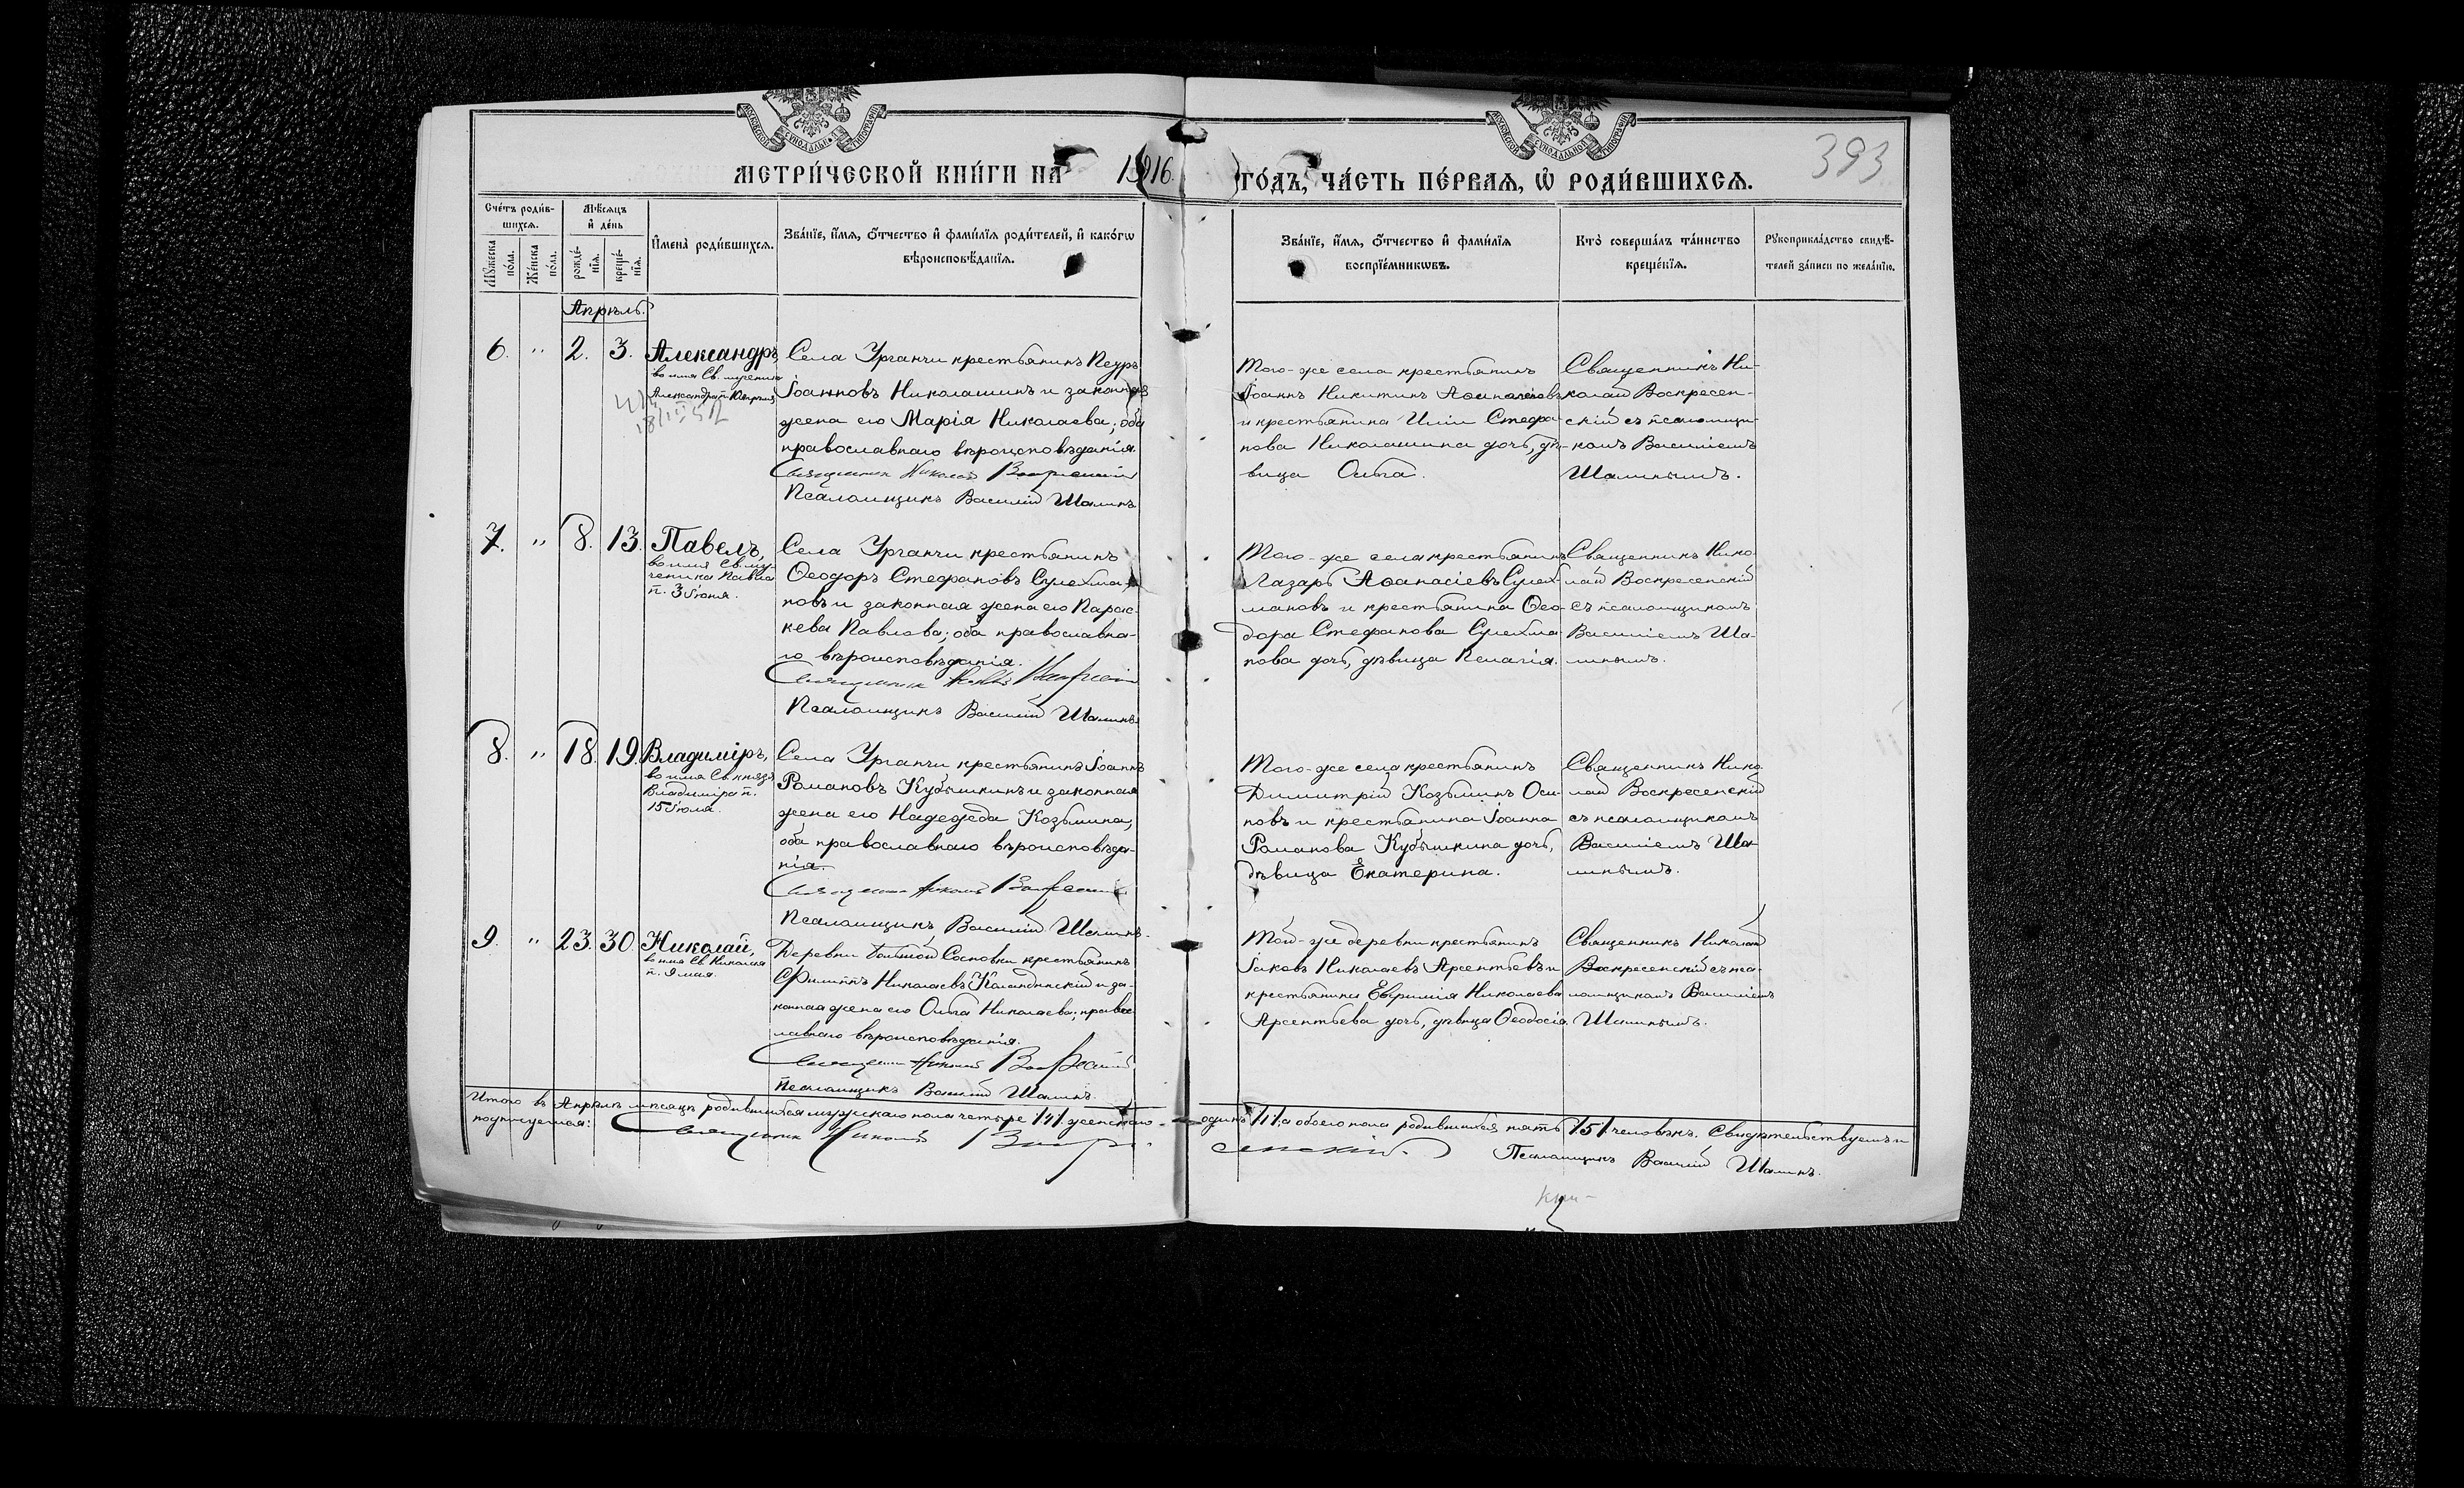 МОСКОВСКОЙ СѴНОДАЛЬНОЙ ТИПОГРАФІИ
МОСКОВСКОЙ СѴНОДАЛЬНОЙ ТИПОГРАФІИ
393
МЕТРИ́ЧЕСКОЙ КНИ́ГИ НА 1916 ГО́ДЪ, ЧА́СТЬ ПЕ́РВАѦ, Ѡ҆ РОДИ́ВШИХСѦ.
Сче́тъ роди́в-
шихсѧ.
Мꙋ́жеска по́ла.
Же́нска по́ла.
Мѣ́сѧцъ
и҆ де́нь
рожде́-
нїѧ.
креще́-
нїѧ.
И҆мена̀ роди́вшихсѧ.
Зва́нїе, и҆́мѧ, ѻ҆́тчество и҆ фами́лїѧ роди́телей, и҆ како́гѡ
вѣроисповѣ́данїѧ.
Зва́нїе, и҆́мѧ, ѻ҆́тчество и҆ фами́лїѧ
воспрїе́мникѡвъ.
Кто̀ соверша́лъ та́инство
креще́нїѧ.
Рꙋкоприкла́дство свидѣ́-
телей за́писи по жела́нїю.
Апрѣль.
6. " 2. 3. Александръ,
во имя Св. мученика
Александра п.
Села Урганчи крестьянинъ Петръ
Іоанновъ Николашинъ и законная
жена его Марія Николаева; оба
православнаго вѣроисповѣданія.
Священникъ Николай Воскресенскій
Псаломщикъ Василій Шалинъ
Того-же села крестьянинъ
Іоаннъ Никитинъ Аѳанасіевъ
и крестьянина Иліи Стефа-
нова Николашина дочь, дѣ-
вица Ольга.
Священникъ Ни-
колай Воскресен-
скій съ псаломщи-
комъ Василіемъ
Шалинымъ.
7. " 8. 13. Павелъ,
во имя Св. му-
ченика Павла
п. 3 Іюня.
Села Урганчи крестьянинъ
Ѳеодоръ Стефановъ Сулейма-
новъ и законная жена его Парас-
кева Павлова; оба православна-
го вѣроисповѣданія.
Священникъ Николай Воскресенскій
Псаломщикъ Василій Шалинъ
Того-же села крестьянинъ
Лазарь Аѳанасіевъ Сулей-
мановъ и крестьянина Ѳео-
дора Стефанова Сулейма-
нова дочь, дѣвица Пелагія.
Священникъ Нико-
лай Воскресенскій
съ псаломщикомъ
Василіемъ Ша-
линымъ.
8. " 18. 19. Владиміръ,
во имя Св. князя
Владиміра п.
15 Іюля.
Села Урганчи крестьянинъ Іоаннъ
Романовъ Кубышкинъ и законная
жена его Надежда Козьмина,
оба православнаго вѣроисповѣда-
нія.
Священникъ Николай Воскресенскій
Псаломщикъ Василій Шалинъ.
Того-же села крестьянинъ
Димитрій Козьминъ Оси-
повъ и крестьянина Іоанна
Романова Кубышкина дочь,
дѣвица Екатерина.
Священникъ Нико-
лай Воскресенскій
съ псаломщикомъ
Василіемъ Ша-
линымъ.
9. " 23. 30. Николай,
во имя Св. Николая
п. 9 мая.
Деревни Большой Сосновки крестьянинъ
Филиппъ Николаевъ Каландинскій и за-
конная жена его Ольга Николаева; правос-
лавнаго вѣроисповѣданія.
Священникъ Николай Воскресенскій
Псаломщикъ Василій Шалинъ.
Той-же деревни крестьянинъ
Іаковъ Николаевъ Арсентьевъ и
крестьянина Евфимія Николаева
Арсентьева дочь, дѣвица Ѳеодосія.
Священникъ Николай
Воскресенскій съ пса-
ломщикомъ Василіемъ
Шалинымъ.
Итого въ Апрѣлѣ мѣсяцѣ родившихся мужскаго пола четыре /4/ женскаго одинъ /1/, а обоего пола родившихся пять /5/ человѣкъ. Свидѣтельствуемъ и
подписуемся: Священникъ Николай Воскресенскій. Псаломщикъ Василій Шалинъ.